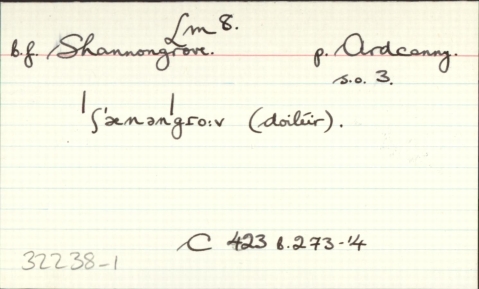 Lm 8.
b.f. Shannongrove. p. Ardcanny.
s.o. 3.
ˈʃænənˈgro:v (doiléir).
C 423 b.273-'4
32238-1